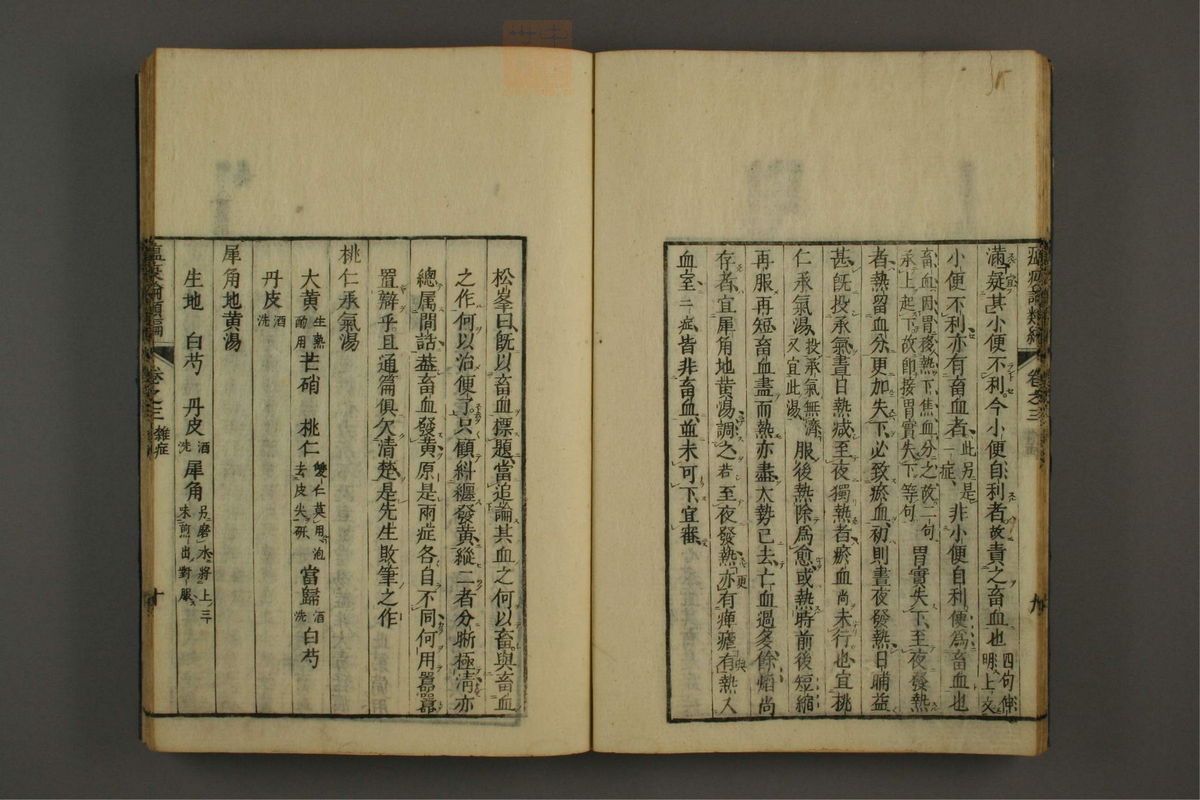 瘟疫論類編 卷之三 雜症 九
滿凝其小便不利今小便自利者故責之畜血也四句伸明上文
小便不利亦有畜血者此另是一症非小便自利便為畜血也
畜血因胃移熱下焦血分之故二句承上起下故即接胃實失下等句胃實失下至夜發熱
者熱留血分更加失下必致瘀血初則晝夜發熱日晡益
甚旣投承氣晝日熱減至夜獨熱者瘀血尚未行也宜桃
仁承氣湯投承氣無濟又宜此湯服後熱除爲愈或熱時前後短縮
再服再短畜血盡而熱亦盡大勢已去亡血過多餘焰尚
存者宜犀角地黃湯調之若至夜發熱亦更有癉瘧有熱入
血室二症皆非畜血並未可下宜審
松峯曰旣以畜血標題當追論其血之何以畜與畜血
之作何以治便了只顧糾纏發黃縱二者分晰極清亦
總屬閒話葢畜血發黃原是兩症各自不同何用囂囂
置辯乎且通篇俱欠清楚是先生敗筆之作
桃仁承氣湯
大黃生熟酌用 芒硝 桃仁雙仁莫用泡去皮尖研 當歸酒洗 白芍
丹皮酒洗
犀角地黃湯
生地 白芍 丹皮酒洗 犀角另磨水將上三味煎出對服
瘟疫論類編 卷之三 雜症 十